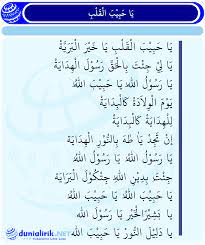 يَا حَبِيْبَ الْقَلْبِ
يَا حَبِيْبَ الْقَلْبِ يَا خَيْرَ الْبَرِيَّةْ
يَا لِيْ جِئْتَ بِالْحَقِّ رَسُوْلَ الْهِدَايَةْ
يَا رَسُوْلَ اللهْ يَا حَبِيْبَ اللهْ
يَوْمَ الْوِلَادَةْ كَالْبِدَايَةْ
لِلْهِدَايَةْ كَالْبِدَايَةْ
إِنْ تَجِدْ يَا طَهَ بِالنُّوْرِ الْهِدَايَةْ
يَا رَسُوْلَ اللهْ يَا حَبِيْبَ اللهْ
جِئْتَ بِدِيْنِ اللهْ الْبَرَايَةْ
يَا رَسُوْلَ اللهْ يَا حَبِيْبَ اللهْ
يَا بَشِيْرَ الْخَيْرْ يَا رَسُوْلَ اللهْ
يَا دَلِيْلَ النُّوْرْ يَا حَبِيْبَ اللهْ
dunialirik.NET